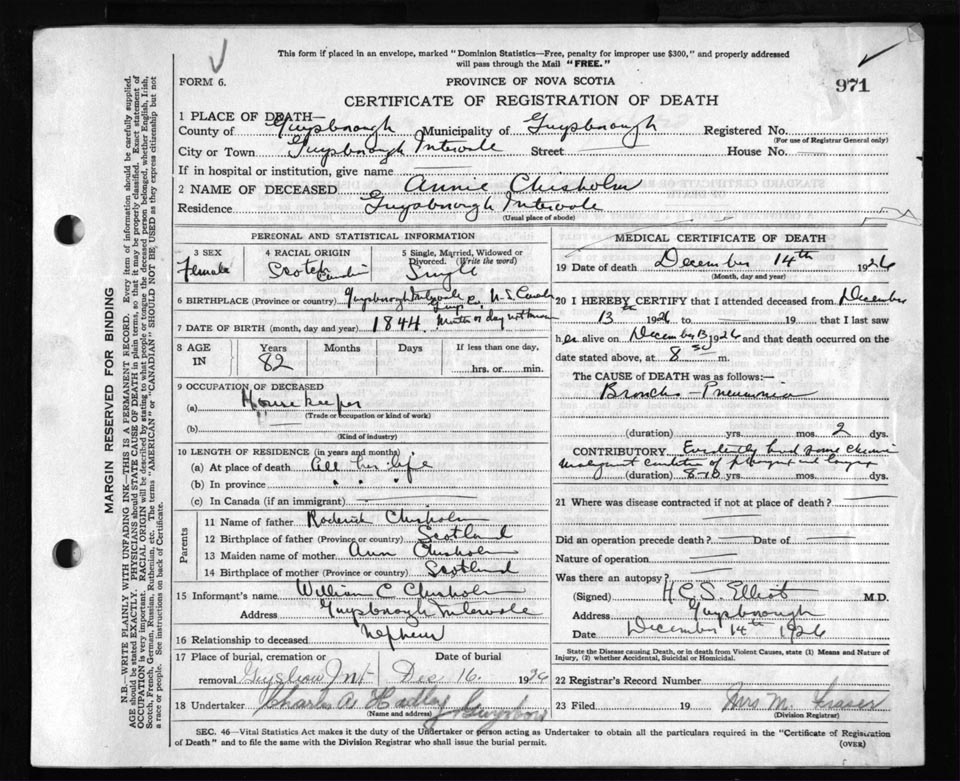 This form if placed in an envelope, marked "Dominion Statistics—Free, penalty for improper use $300," and properly addressed
will pass through the Mail "FREE."
FORM 6.
PROVINCE OF NOVA SCOTIA
971
CERTIFICATE OF REGISTRATION OF DEATH
1 PLACE OF DEATH—
County of Guysborough Municipality of Guysborough Registered No.
(For use of Registrar General only)
City or Town Guysborough Intervale Street House No.
If in hospital or institution, give name
2 NAME OF DECEASED Annie Chisholm
Residence Guysborough Intervale
(Usual place of abode)
PERSONAL AND STATISTICAL INFORMATION
3 SEX
Female
4 RACIAL ORIGIN
Scotch
5 Single, Married, Widowed or
Divorced. (Write the word)
Single
6 BIRTHPLACE (Province or country) Guysborough Intervale Guys Co. N.S. Canada
7 DATE OF BIRTH (month, day and year) 1844. Month or day not known
8 AGE
IN
Years
82
Months
Days
If less than one day,
hrs. or min.
9 OCCUPATION OF DECEASED
(a) House Keeper
(Trade or occupation or kind of work)
(b)
(Kind of industry)
10 LENGTH OF RESIDENCE (in years and months)
(a) At place of death all her life
(b) In province " " "
(c) In Canada (if an immigrant)
Parents
11 Name of father Roderick Chisholm
12 Birthplace of father (Province or country) Scotland
13 Maiden name of mother Ann Chisholm
14 Birthplace of mother (Province or country) Scotland
15 Informant's name William C Chisholm
Address Guysborough Intervale
16 Relationship to deceased nephew
17 Place of burial, cremation or
Date of burial
removal Guysboro Int Dec 16. 1926
18 Undertaker Charles A Hadley Guysboro
(Name and address)
MEDICAL CERTIFICATE OF DEATH
19 Date of death December 14th 1926
(Month, day and year)
20 I HEREBY CERTIFY that I attended deceased from December
13th 1926 to 19 that I last saw
her alive on December 13 1926 and that death occurred on the
date stated above, at 8 m.
The CAUSE of DEATH was as follows:—
Broncho-Pneumonia
(duration) yrs. mos. 2 dys.
CONTRIBUTORY Evidently had some chronic
malignant condition of pharynx and larynx
(duration) 8-10 yrs. mos. dys.
21 Where was disease contracted if not at place of death?
Did an operation precede death? Date of
Nature of operation
Was there an autopsy?
(Signed) H.C.S. Elliot M.D.
Address Guysborough
Date December 14th 1926
State the Disease causing Death, or in death from Violent Causes, state (1) Means and Nature of
Injury, (2) whether Accidental, Suicidal or Homicidal.
22 Registrar's Record Number
23 Filed 19 Mrs M. Fraser
(Division Registrar)
SEC. 46—Vital Statistics Act makes it the duty of the Undertaker or person acting as Undertaker to obtain all the particulars required in the "Certificate of Registration
of Death" and to file the same with the Division Registrar who shall issue the burial permit.
(OVER)
MARGIN RESERVED FOR BINDING
N.B.—WRITE PLAINLY WITH UNFADING INK—THIS IS A PERMANENT RECORD. Every item of information should be carefully supplied.
AGE should be stated EXACTLY. PHYSICIANS should STATE CAUSE OF DEATH in plain terms, so that it may be properly classified. Exact statement of
OCCUPATION is very important. RACIAL ORIGIN will be described by stating to what people or tongue the deceased person belonged, whether English, Irish,
Scotch, French, German, Russian, Ruthenian, etc. The terms "AMERICAN" or "CANADIAN" SHOULD NOT BE USED as they express citizenship but not
a race or people. See instructions on back of Certificate.